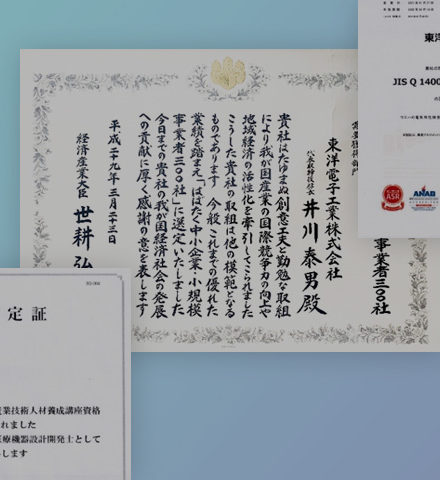 事業者三〇〇社
東洋電子工業株式会社
代表取締役社長
井川泰男殿
貴社はたゆまぬ創意工夫と勤勉な取組
により我が国産業の国際競争力の向上や
地域経済の活性化を牽引してこられました
こうした貴社の取組は他の模範となる
ものであります 今般これまでの優れた
業績を踏まえ「はばたく中小企業・小規模
事業者三〇〇社」に選定いたしました
今日までの貴社の我が国経済社会の発展
への貢献に厚く感謝の意を表します
平成二十九年三月二十三日
経済産業大臣
世耕弘
東洋
JIS Q 1400
ASR
ANAB
定証
産業技術人材養成講座資格
れました
医療機器設計開発士として
します